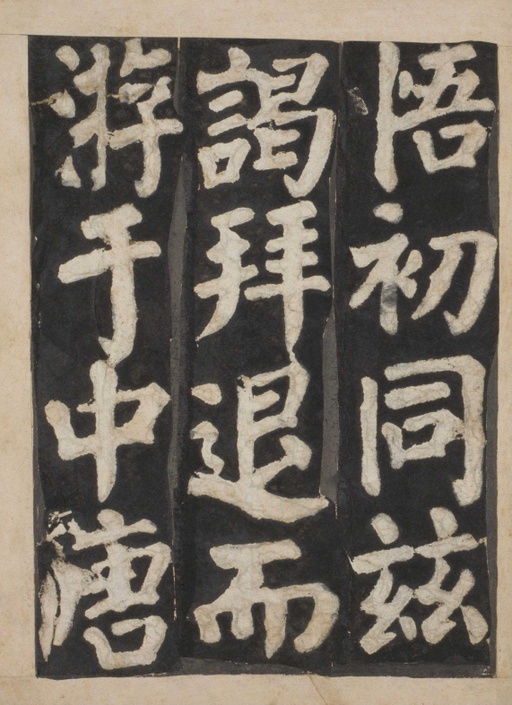 悟初同兹
謁拜退而
游于中唐